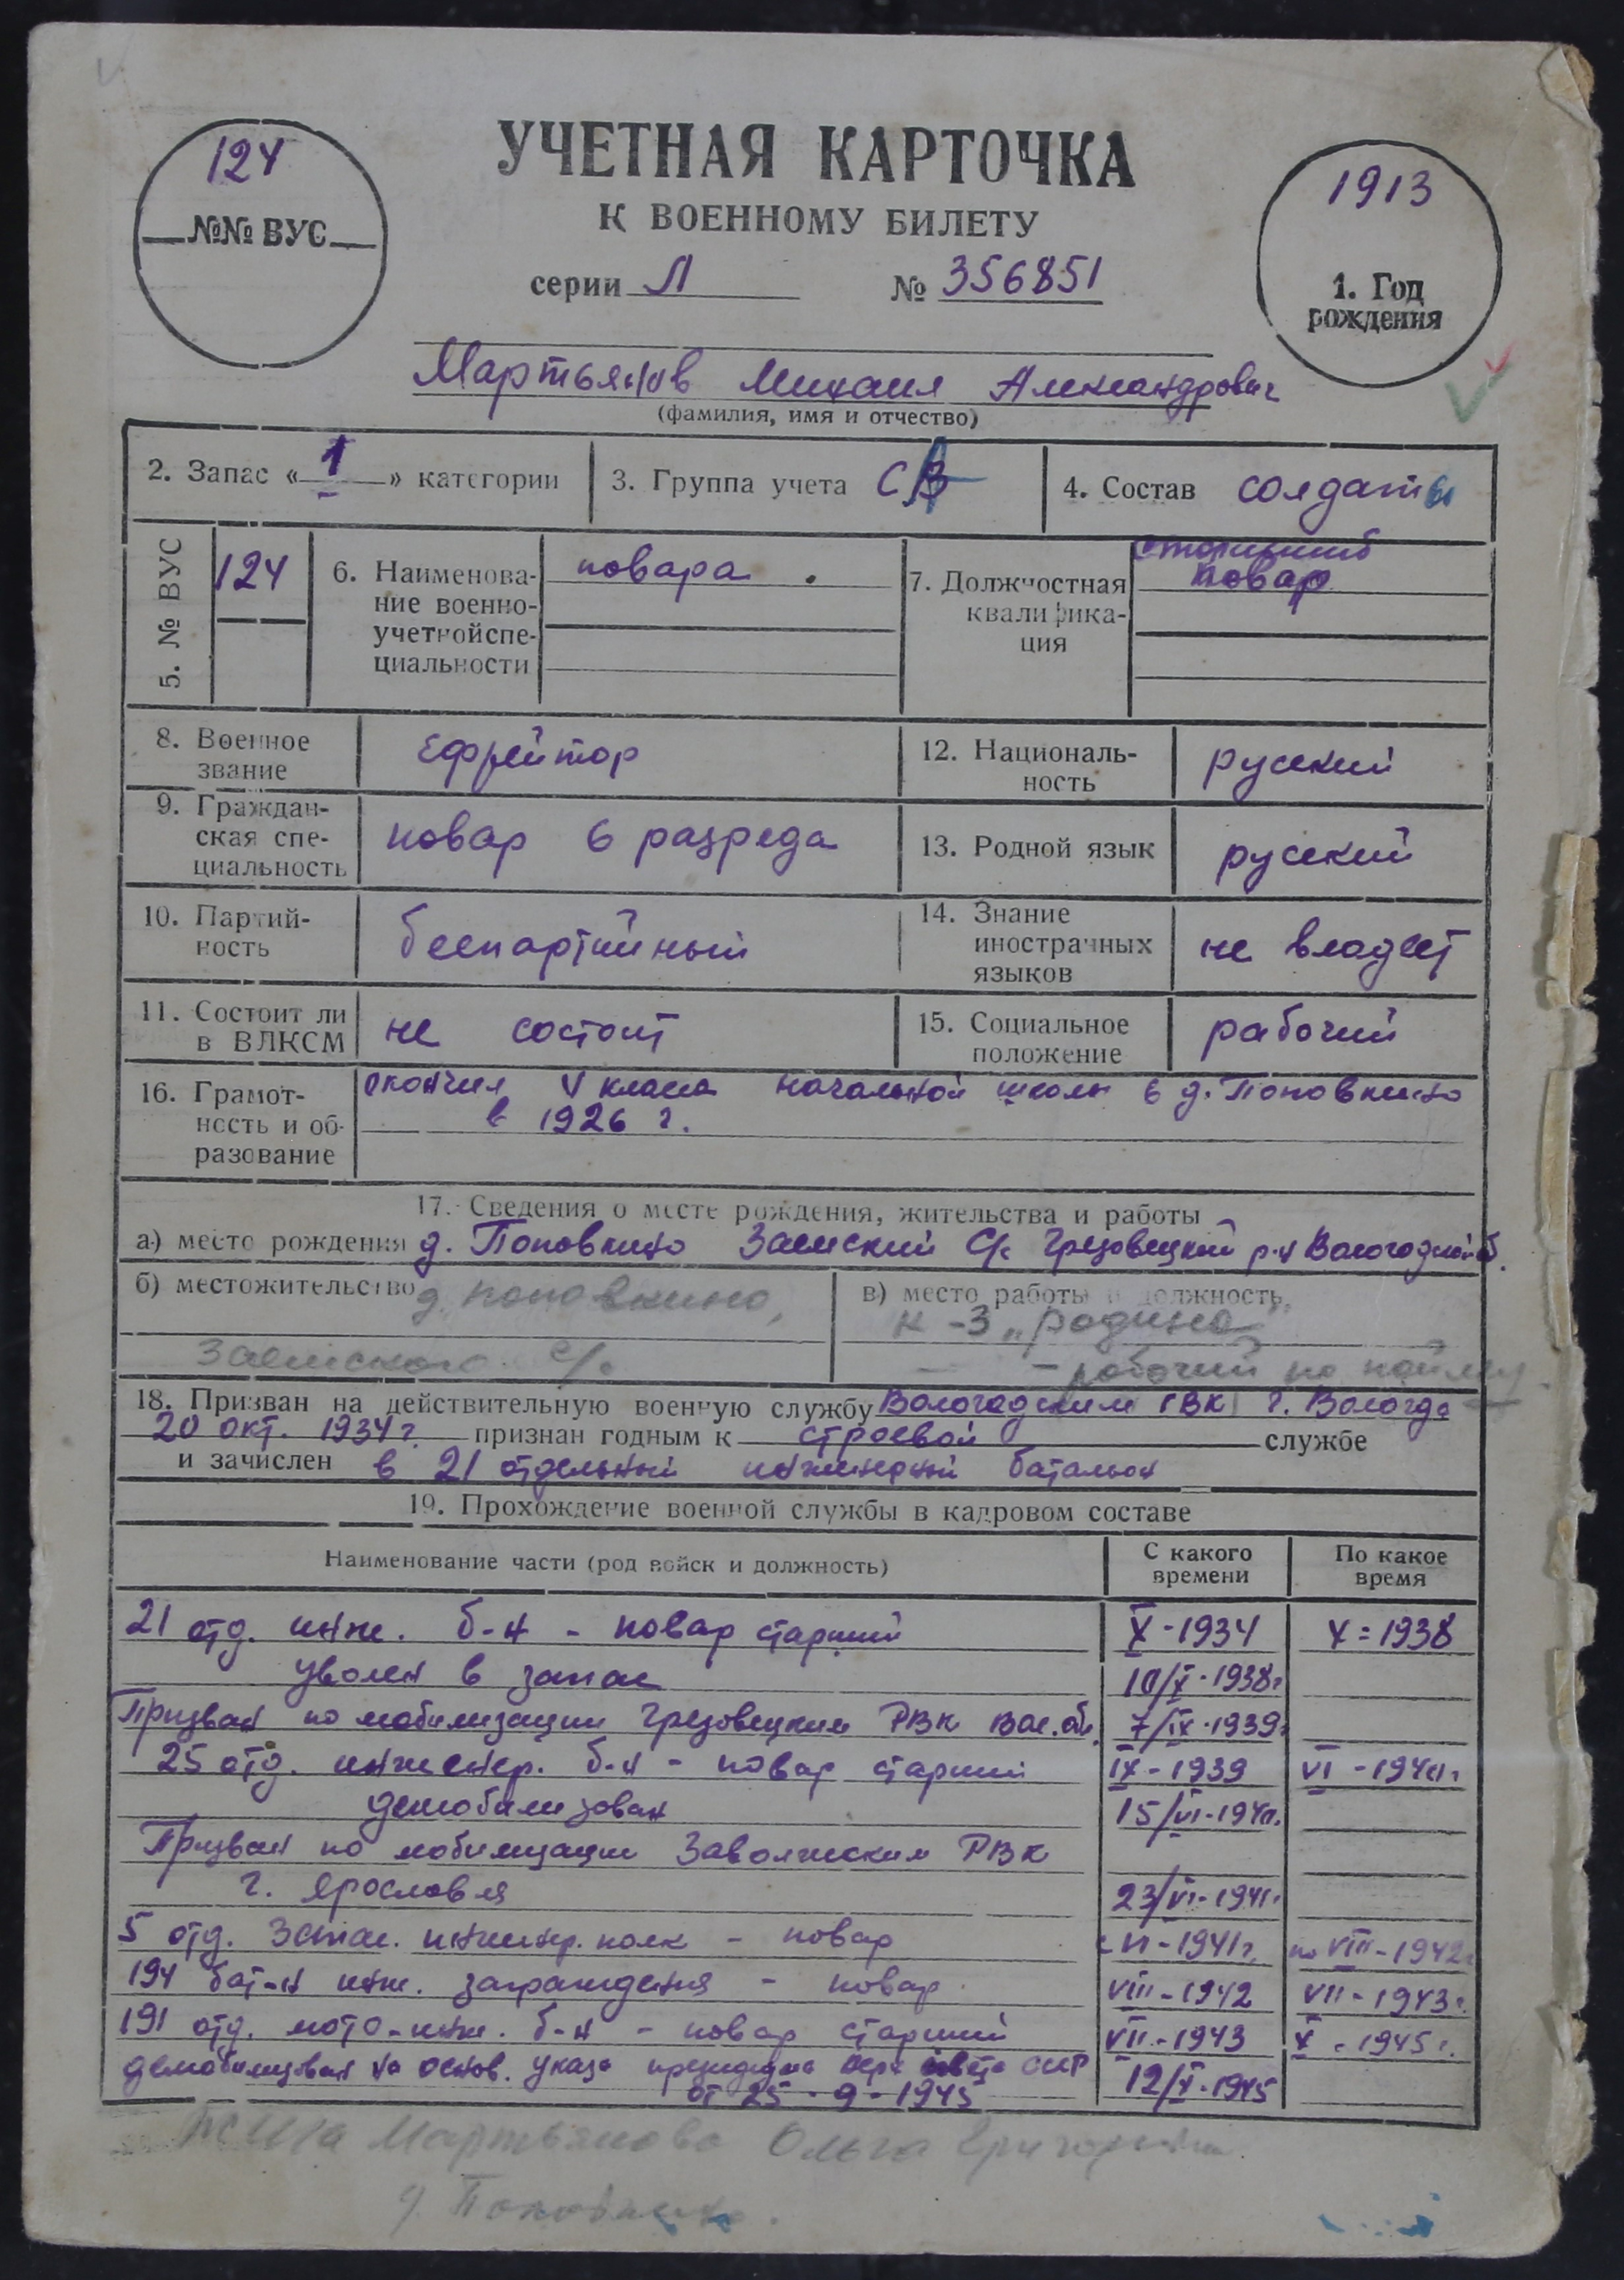 124
№№ ВУС
УЧЕТНАЯ КАРТОЧКА
К ВОЕННОМУ БИЛЕТУ
серии Л № 356851
1913
1. Год
рождения
Мартьянов Михаил Александрович
(фамилия, имя и отчество)
2. Запас « 1 » категории
3. Группа учета СА
4. Состав солдаты
5. № ВУС
124
6. Наименова-
ние военно-
учетной спе-
циальности
повара
7. Должностная
квалифика-
ция
повар
8. Военное
звание
ефрейтор
12. Националь-
ность
русский
9. Граждан-
ская спе-
циальность
повар 6 разреда
13. Родной язык
русский
10. Партий-
ность
беспартийный
14. Знание
иностранных
языков
не владеет
11. Состоит ли
в ВЛКСМ
не состоит
15. Социальное
положение
рабочий
16. Грамот-
ность и об-
разование
окончил V класса начальной школы в д. Поповкино
в 1926 г.
17. Сведения о месте рождения, жительства и работы
а) место рождения д. Поповкино Заемский С/с Грязовецкий р-н Вологодской об.
б) местожительство д. Поповкино,
Заемского с/с
в) место работы и должность
к-з „Родина"
- рабочий по найму
18. Призван на действительную военную службу Вологодским ГВК г. Вологда
20 окт. 1934 г. признан годным к строевой службе
и зачислен в 21 отдельный инженерный батальон
19. Прохождение военной службы в кадровом составе
Наименование части (род войск и должность)
С какого
времени
По какое
время
21 отд. инж. б-н - повар старший X - 1934 X = 1938
уволен в запас 10/X - 1938г
Призван по мобилизации Грязовецким РВК Вол. обл. 7/IX - 1939г
25 отд. инженер. б-н - повар старший IX - 1939 VI - 1940г
демобилизован 15/VI - 1940г.
Призван по мобилизации Заволжским РВК
г. Ярославля 23/VI - 1941г
5 отд. запас. инженер. полк - повар с VI - 1941г. по VIII - 1942г
194 бат-н инж. заграждения - повар VIII - 1942 VII - 1943г.
191 отд. мото-инж. б-н - повар старший VII - 1943 X - 1945г.
демобилизован на основ. указа президиума верх совета СССР 12/X - 1945
от 25 - 9 - 1945
жена Мартьянова Ольга Григорьевна
д Поповкино.